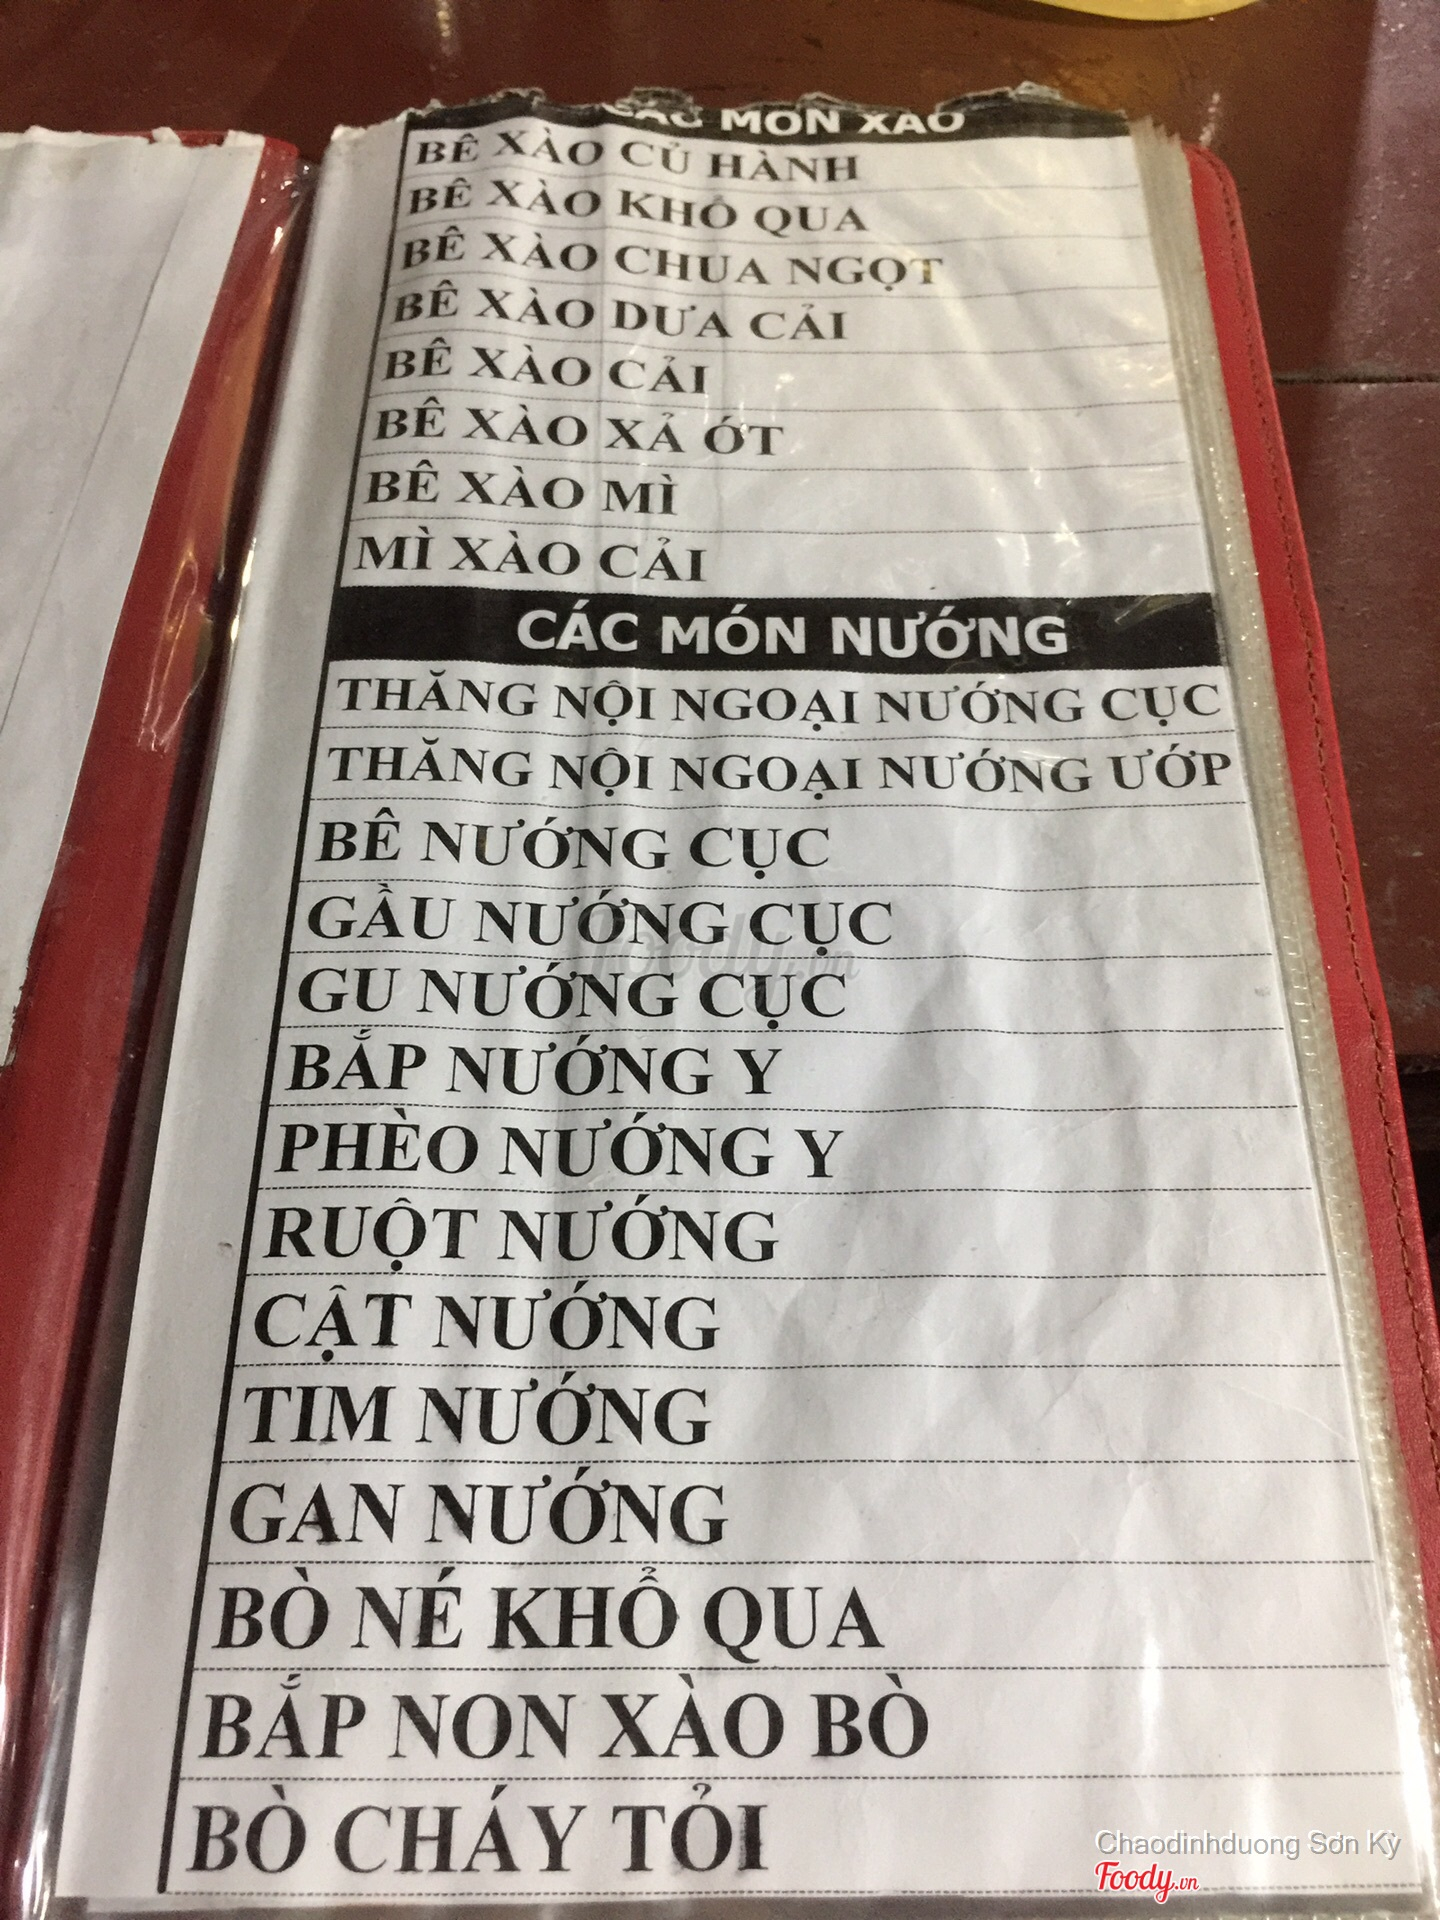 CÁC MÓN XÀO
BÊ XÀO CỦ HÀNH
BÊ XÀO KHỔ QUA
BÊ XÀO CHUA NGỌT
BÊ XÀO DƯA CẢI
BÊ XÀO CẢI
BÊ XÀO XẢ ỚT
BÊ XÀO MÌ
MÌ XÀO CẢI
CÁC MÓN NƯỚNG
THĂNG NỘI NGOẠI NƯỚNG CỤC
THĂNG NỘI NGOẠI NƯỚNG ƯỚP
BÊ NƯỚNG CỤC
GẦU NƯỚNG CỤC
GU NƯỚNG CỤC
BẮP NƯỚNG Y
PHÈO NƯỚNG Y
RUỘT NƯỚNG
CẬT NƯỚNG
TIM NƯỚNG
GAN NƯỚNG
BÒ NÉ KHỔ QUA
BẮP NON XÀO BÒ
BÒ CHÁY TỎI
foody.vn
Chaodinhduong Sơn Kỳ
Foody.vn